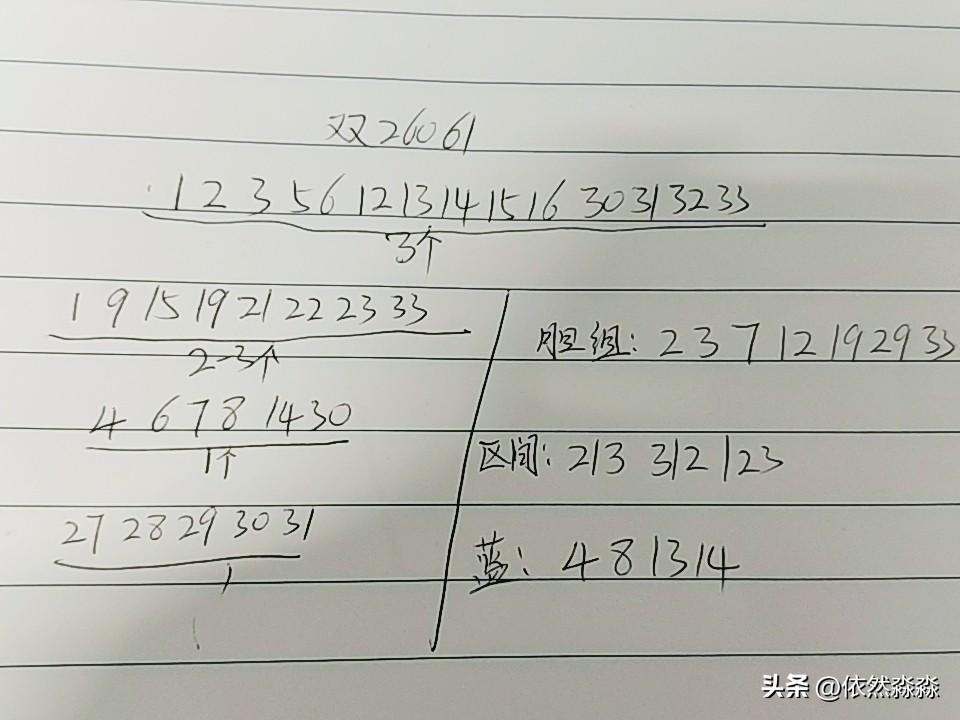 双26061
1 2 3 5 6 12 13 14 15 16 30 31 32 33
3个
1 9 15 19 21 22 23 33
2-3个
4 6 7 8 14 30
1个
27 28 29 30 31
1
胆组: 2 3 7 12 19 29 33
区间: 213 312 123
蓝: 4 8 13 14
头条 @依然淼淼